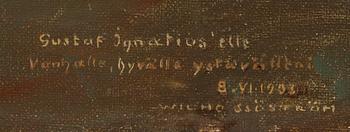 Gustaf Ignatius'elle
Vanhalle, hyvälle ystävälleni
8.VI.1903
WICHO SJÖSTRÖM